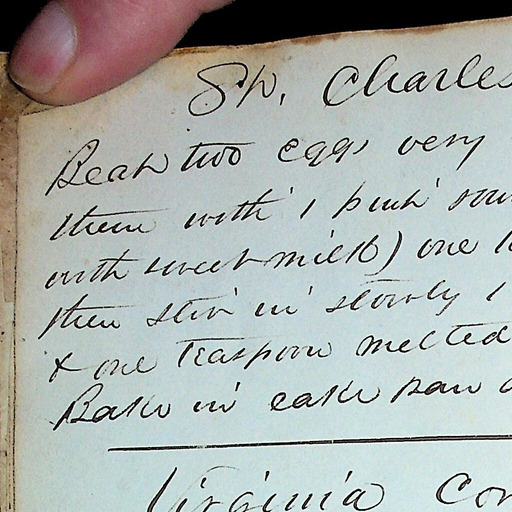 St. Charles
Beat two eggs very
them with 1 pint sour
with sweet milk) one
then stir in slowly 1
& one teaspoon melted
Bake in cake pan
Virginia Cor